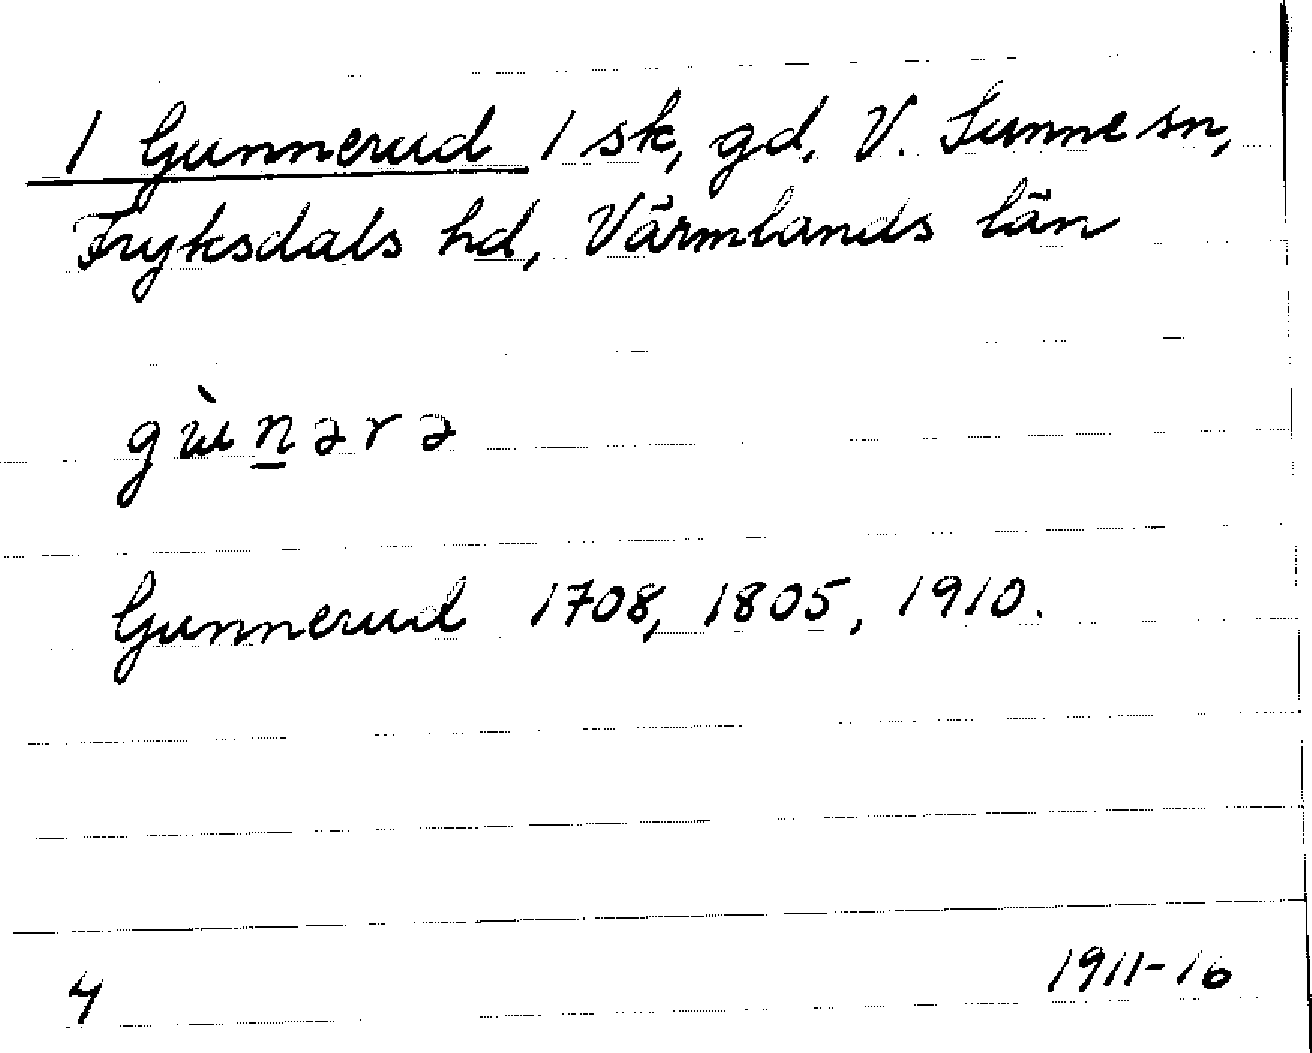 1 Gunnerud 1 sk, gd, V. Sunne sn,
Fryksdals hd, Värmlands län
gɯ̀n̲ərə
Gunnerud 1708, 1805, 1910.
4
1911-16